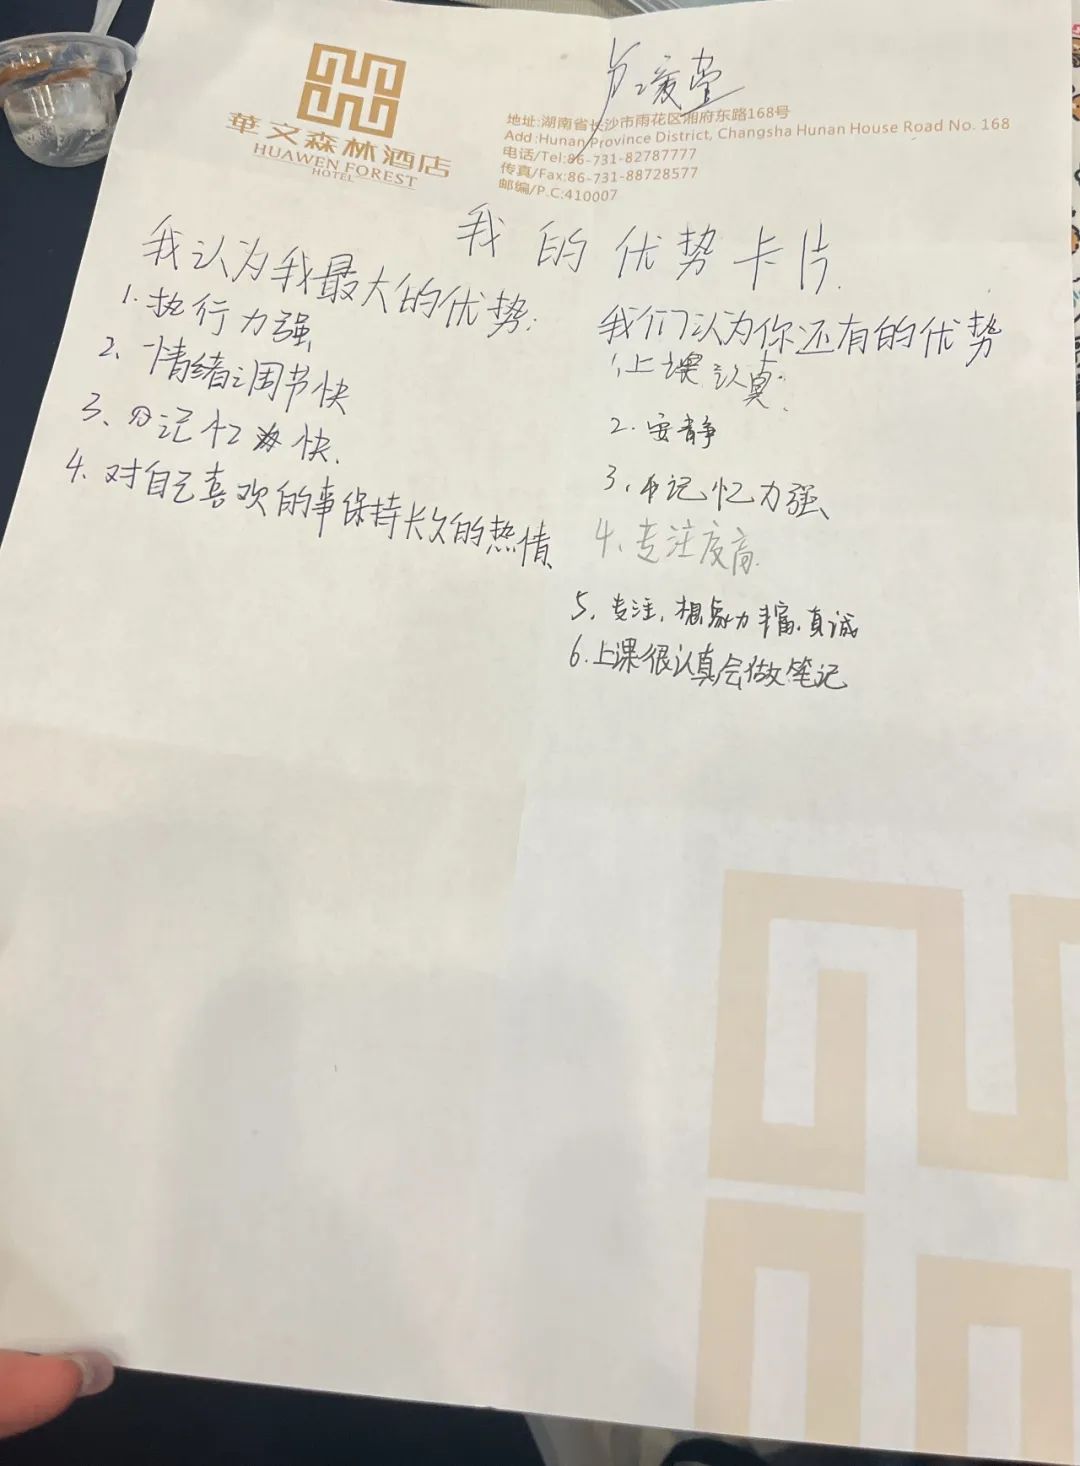 華文森林酒店
HUAWEN FOREST
HOTEL
地址:湖南省长沙市雨花区湘府东路168号
Add:Hunan Province District, Changsha Hunan House Road No. 168
电话/Tel:86-731-82787777
传真/Fax:86-731-88728577
邮编/P.C:410007
我的优势卡片.
我认为我最大的优势:
1.执行力强
2、情绪调节快
3、记忆快.
4.对自己喜欢的事保持长久的热情
我们认为你还有的优势
1、上课认真.
2.安静
3、记忆力强
4、专注度高
5、专注,想象力丰富.真诚
6.上课很认真会做笔记